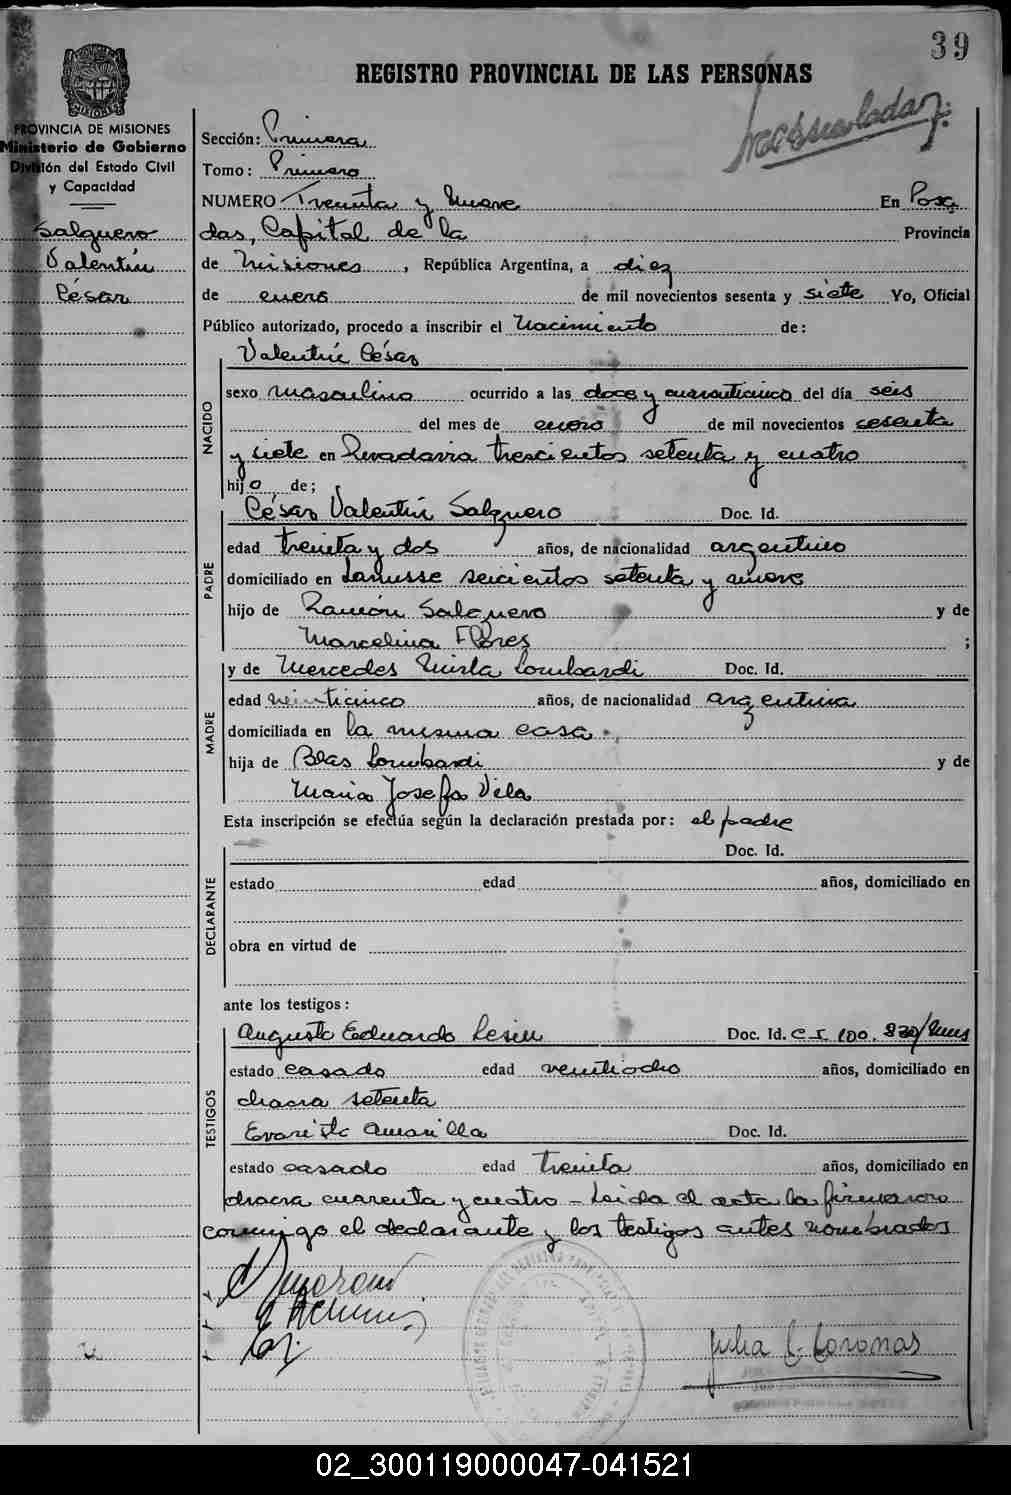 39
REGISTRO PROVINCIAL DE LAS PERSONAS
PROVINCIA DE MISIONES
Ministerio de Gobierno
División del Estado Civil
y Capacidad
Salguero
Valentín
César
Sección: Primera
Tomo: Primero
NUMERO Treinta y Nueve En Posa
das, Capital de la Provincia
de Misiones, República Argentina, a diez
de enero de mil novecientos sesenta y siete Yo, Oficial
Público autorizado, procedo a inscribir el Nacimiento de:
Valentín César
NACIDO
sexo masculino ocurrido a las doce y cuarenticinco del día seis
del mes de enero de mil novecientos sesenta
y siete en Rivadavia trescientos setenta y cuatro
hijo de;
PADRE
César Valentín Salguero Doc. Id.
edad treinta y dos años, de nacionalidad argentino
domiciliado en Lanusse seicientos setenta y nueve
hijo de Ramón Salguero y de
Marcelina Flores ;
MADRE
y de Mercedes Mirta Lombardi Doc. Id.
edad veinticinco años, de nacionalidad argentina
domiciliada en la misma casa.
hija de Blas Lombardi y de
Maria Josefa Vila
Esta inscripción se efectúa según la declaración prestada por: el padre
DECLARANTE
Doc. Id.
estado edad años, domiciliado en
obra en virtud de
ante los testigos:
TESTIGOS
Augusto Eduardo Doc. Id. C.I. 100.830/Mnes
estado casado edad veintiocho años, domiciliado en
chacra setenta
Evaristo Amarilla Doc. Id.
estado casado edad treinta años, domiciliado en
chacra cuarenta y cuatro - Leida el acta la firmaron
conmigo el declarante y los testigos antes nombrados
Julia Coronas
02_300119000047-041521